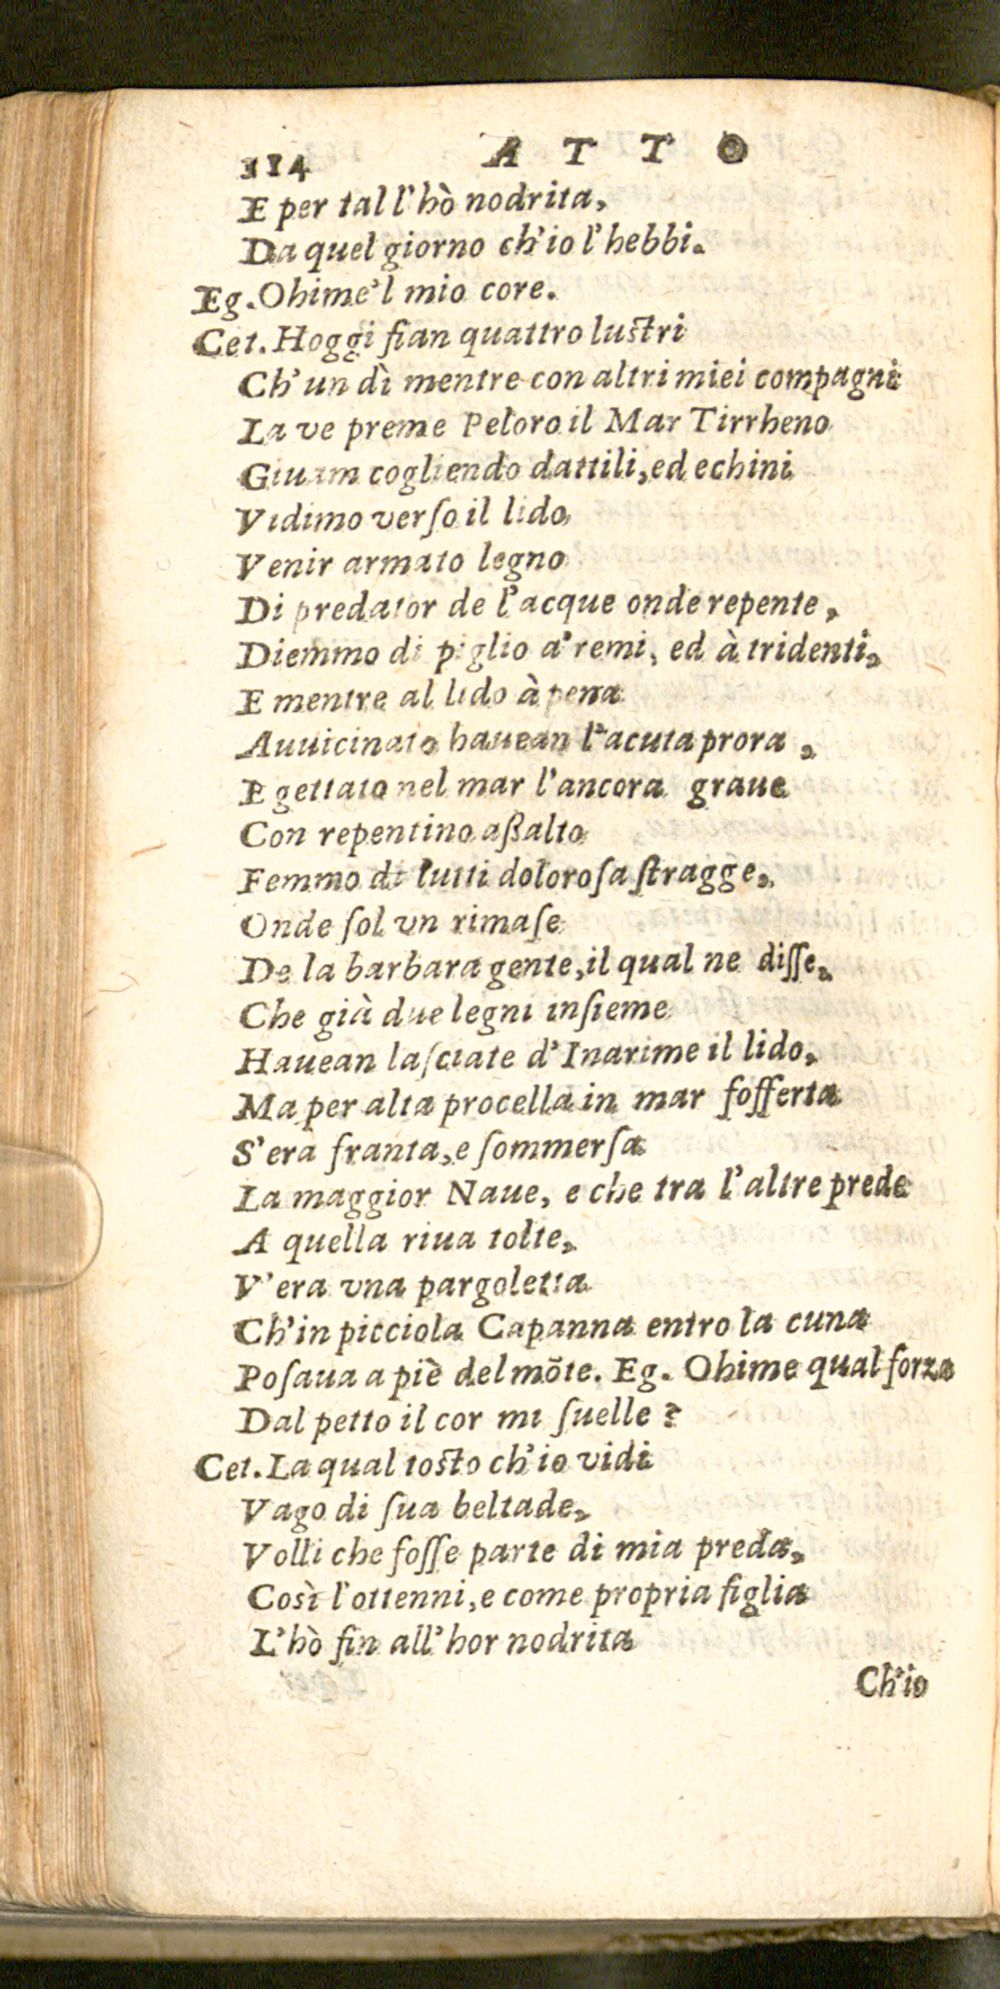 114 ATTO
E per tal l'hò nodrita,
Da quel giorno ch'io l'hebbi.
Eg. Ohime'l mio core.
Cet. Hoggi fian quattro lustri
Ch'un dì mentre con altri miei compagni
La ve preme Peloro il Mar Tirrheno
Giuam cogliendo dattili, ed echini
Vidimo verſo il lido
Venir armato legno
Di predator de l'acque onde repente,
Diemmo di piglio a' remi, ed à tridenti,
E mentre al lido à pena
Auuicinato hauean l'acuta prora,
E gettato nel mar l'ancora graue
Con repentino aßalto
Femmo di tutti doloroſa ſtragge,
Onde ſol vn rimaſe
De la barbara gente, il qual ne diſſe,
Che già due legni inſieme
Hauean laſciate d'Inarime il lido,
Ma per alta procella in mar ſofferta
S'era franta, e ſommerſa
La maggior Naue, e che tra l'altre prede
A quella riua tolte,
V'era vna pargoletta
Ch'in picciola Capanna entro la cuna
Poſaua a piè del mõte. Eg. Ohime qual forza
Dal petto il cor mi ſuelle?
Cet. La qual tosto ch'io vidi
Vago di ſua beltade,
Volli che foſſe parte di mia preda,
Così l'ottenni, e come propria figlia
L'hò fin all'hor nodrita
Ch'io